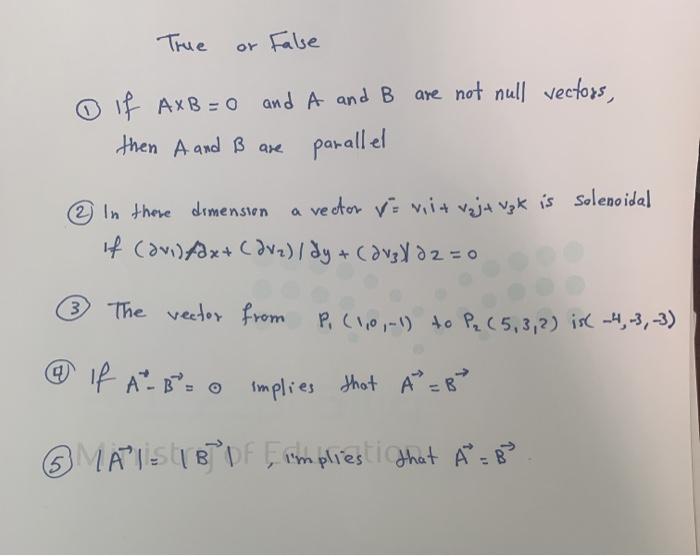 True or False
① If A×B = 0 and A and B are not null vectors,
then A and B are parallel
② In there dimension a vector V = v₁i + v₂j + v₃k is Solenoidal
If (∂v₁)/∂x + (∂v₂)/∂y + (∂v₃)/∂z = 0
③ The vector from P₁ (1,0,-1) to P₂ (5,3,2) is( -4,-3,-3)
④ If A⃗ - B⃗ = 0 implies that A⃗ = B⃗
Ministry of Education
⑤ |A⃗| = |B⃗| , implies that A⃗ = B⃗.